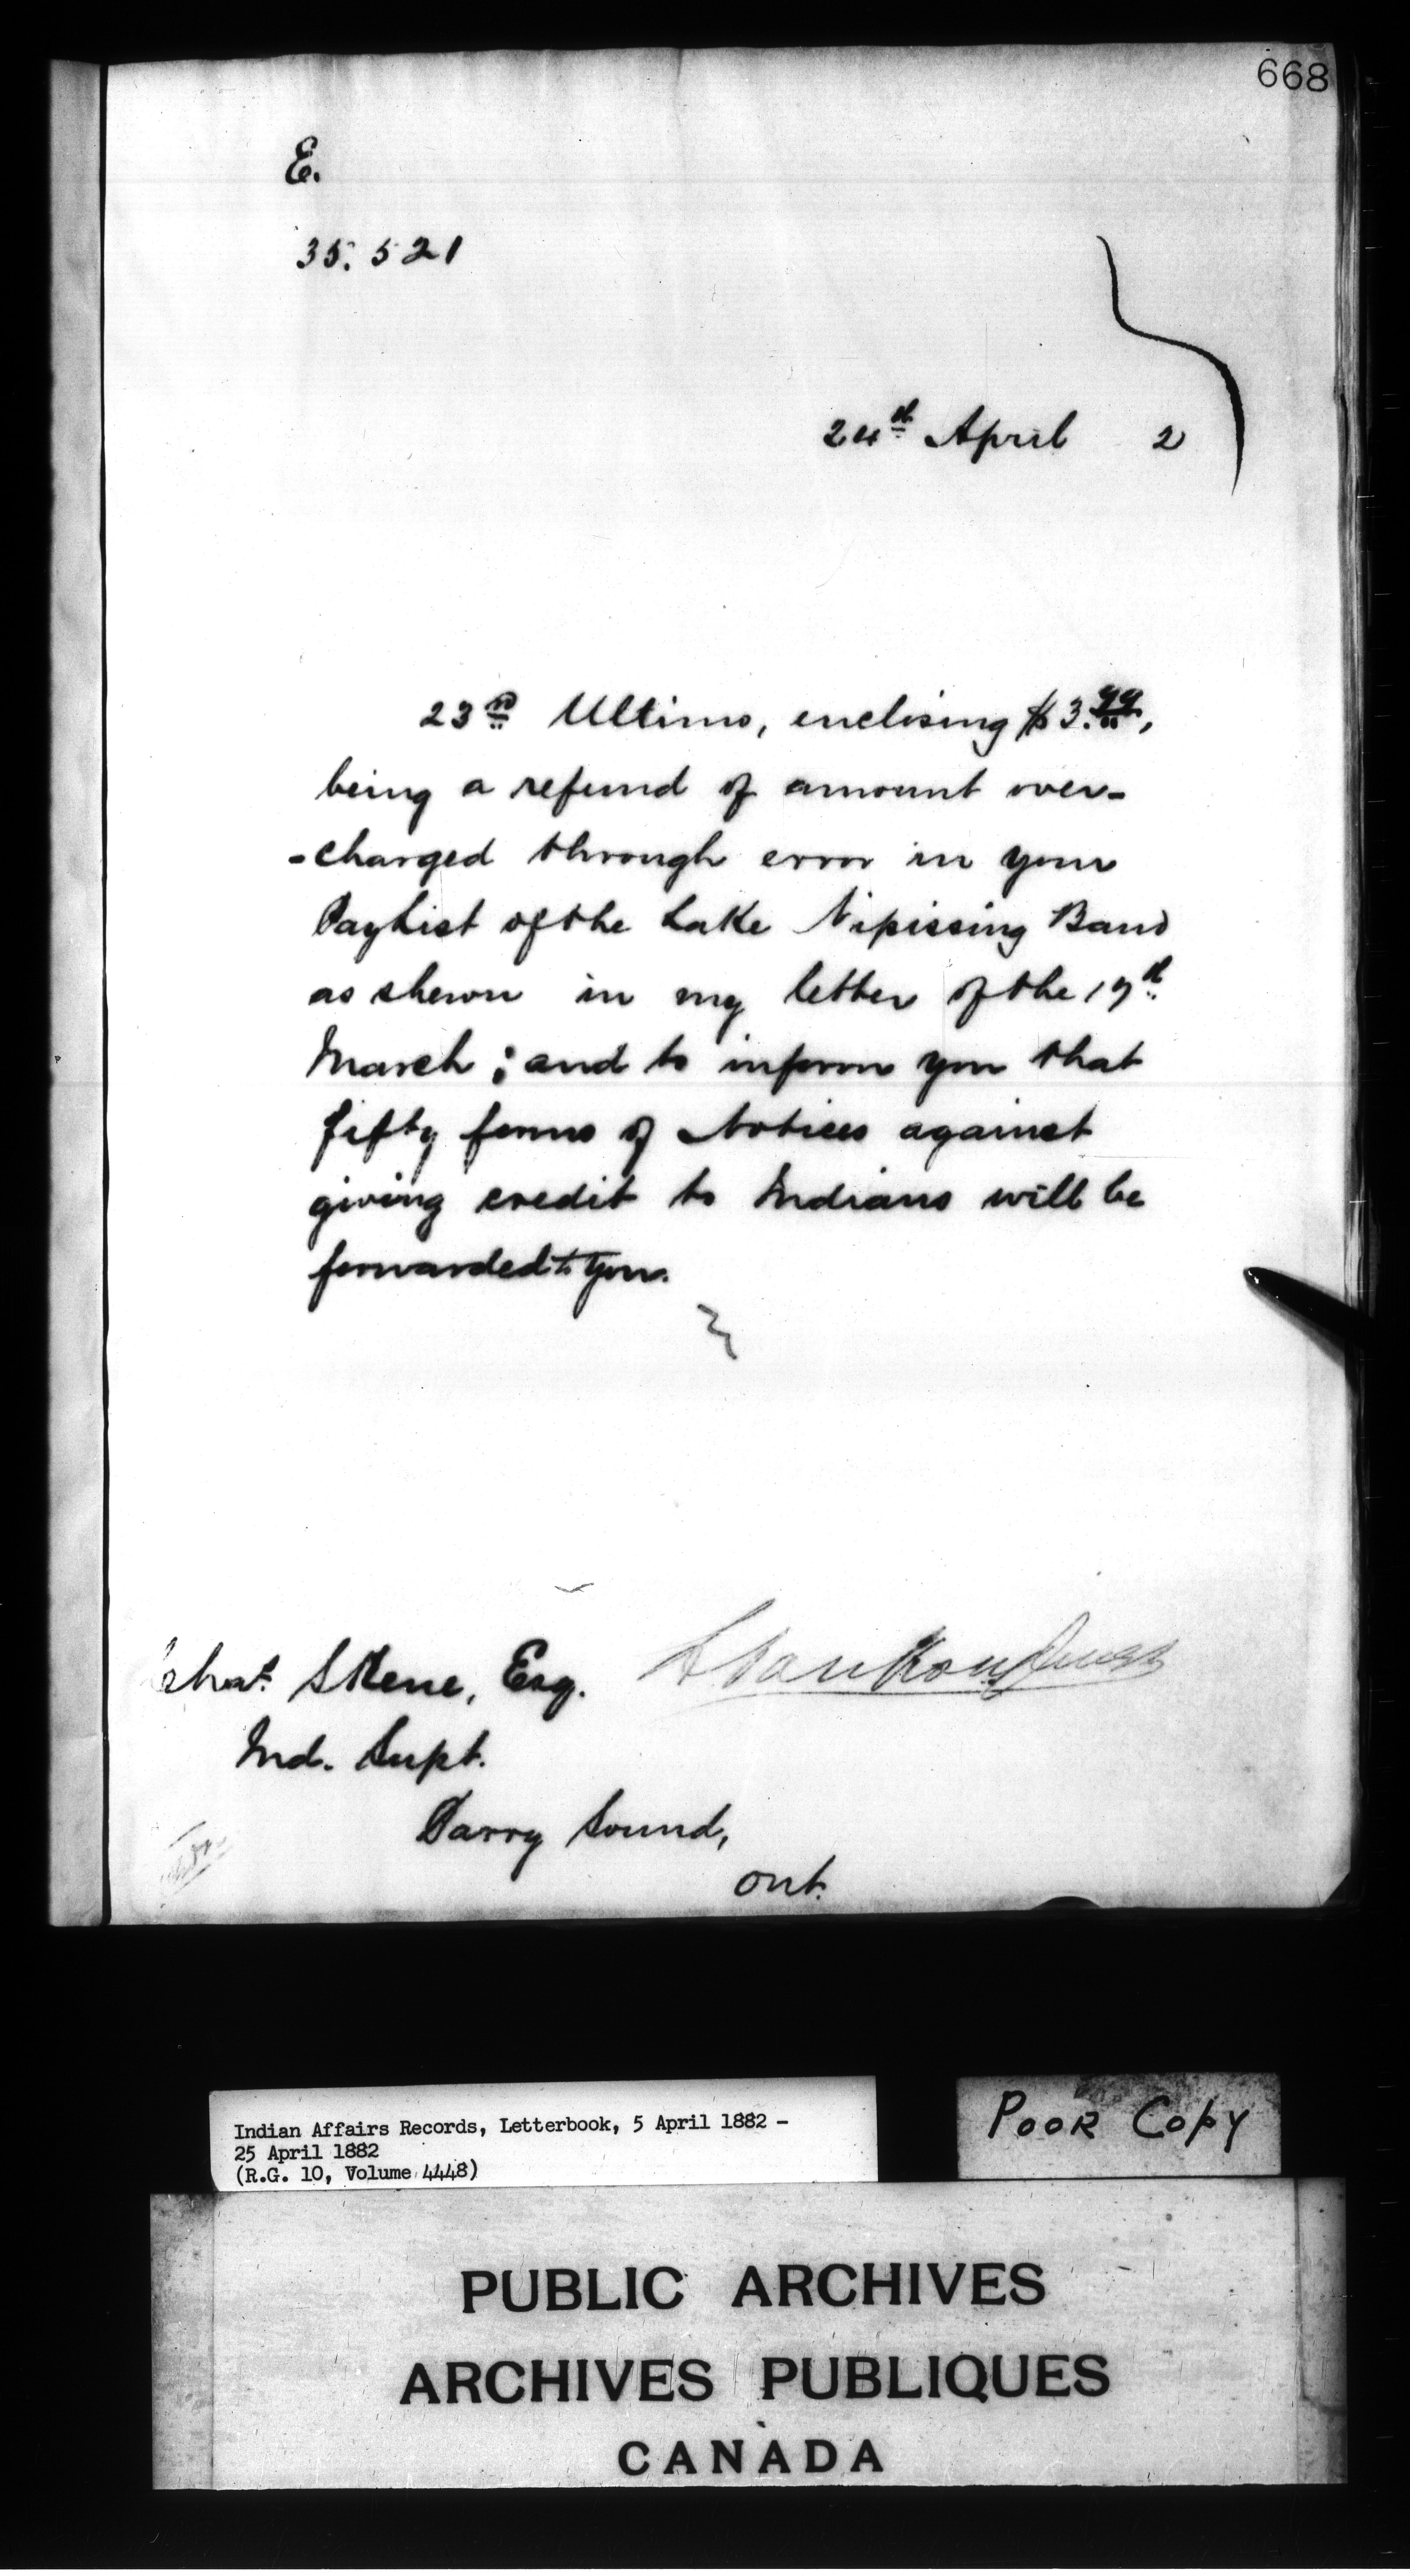 668
E.
35.521
24th April 2
23rd Ultimo, enclosing $3.99,
being a refund of amount over-
-charged through error in your
PayList of the Lake Nipissing Band
as shewn in my letter of the 17th
March; and to inform you that
fifty forms of Notices against
giving credit to Indians will be
forwarded to you.
Chas. Skene, Esq. L VanKoughnet
Ind. Supt.
Parry Sound,
Ont.
Indian Affairs Records, Letterbook, 5 April 1882 -
25 April 1882
(R.G. 10, Volume 4448)
POOR COPY
PUBLIC ARCHIVES
ARCHIVES PUBLIQUES
CANADA